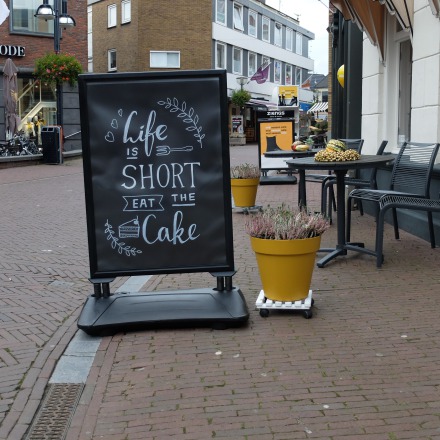 ODE
Life
IS
SHORT
EAT THE
Cake
ZIENGS